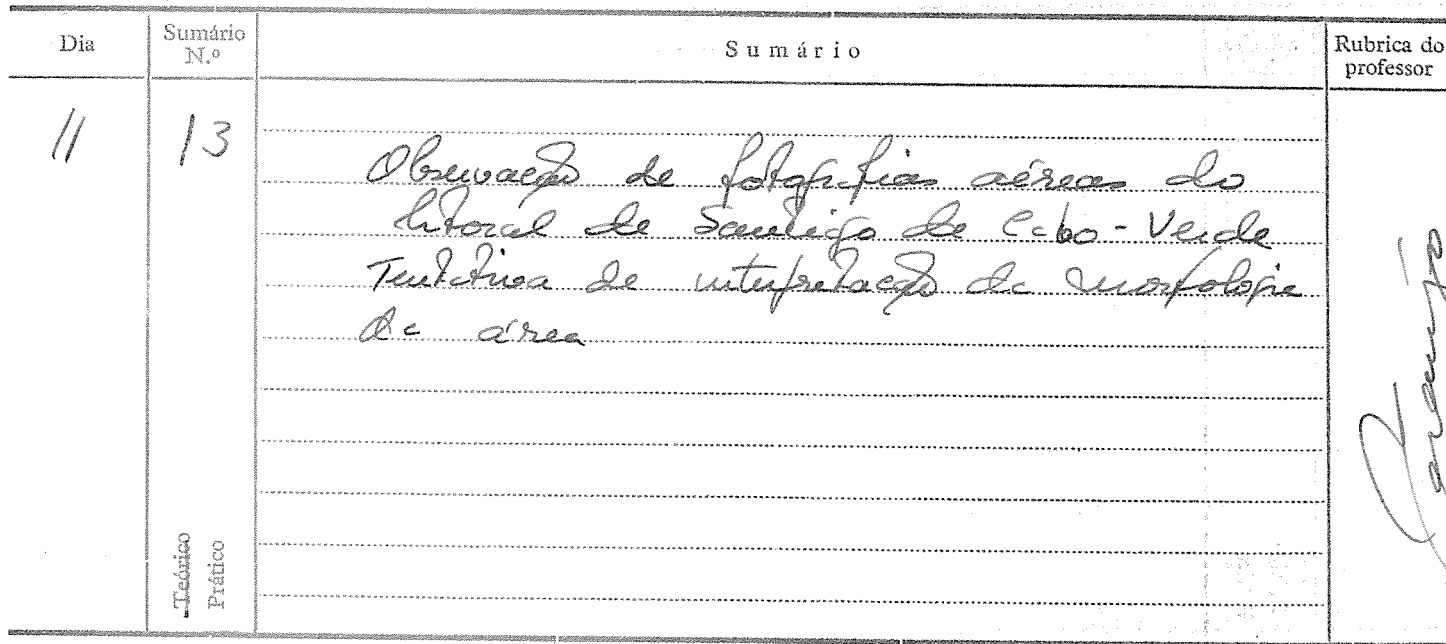 Dia
Sumário N.º
Sumário
Rubrica do professor
11
13
Observação de fotografias aéreas do
litoral de Santiago de Cabo-Verde
Tentativa de interpretação da morfologia
da área
Teórico
Prático